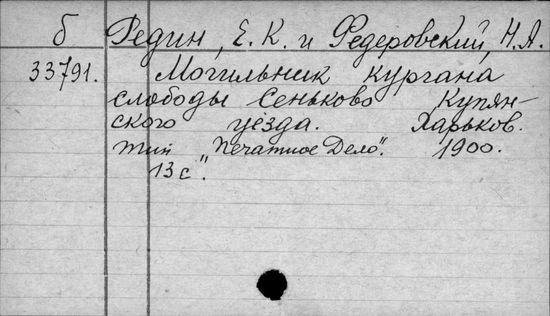 б Редин, Е. К. и Федеровский, Н. А.
33791. Могильник кургана
слободы Сеньково Купян-
ского уезда. Харьков.
тип „Печатное Дело“. 1900.
13 с.